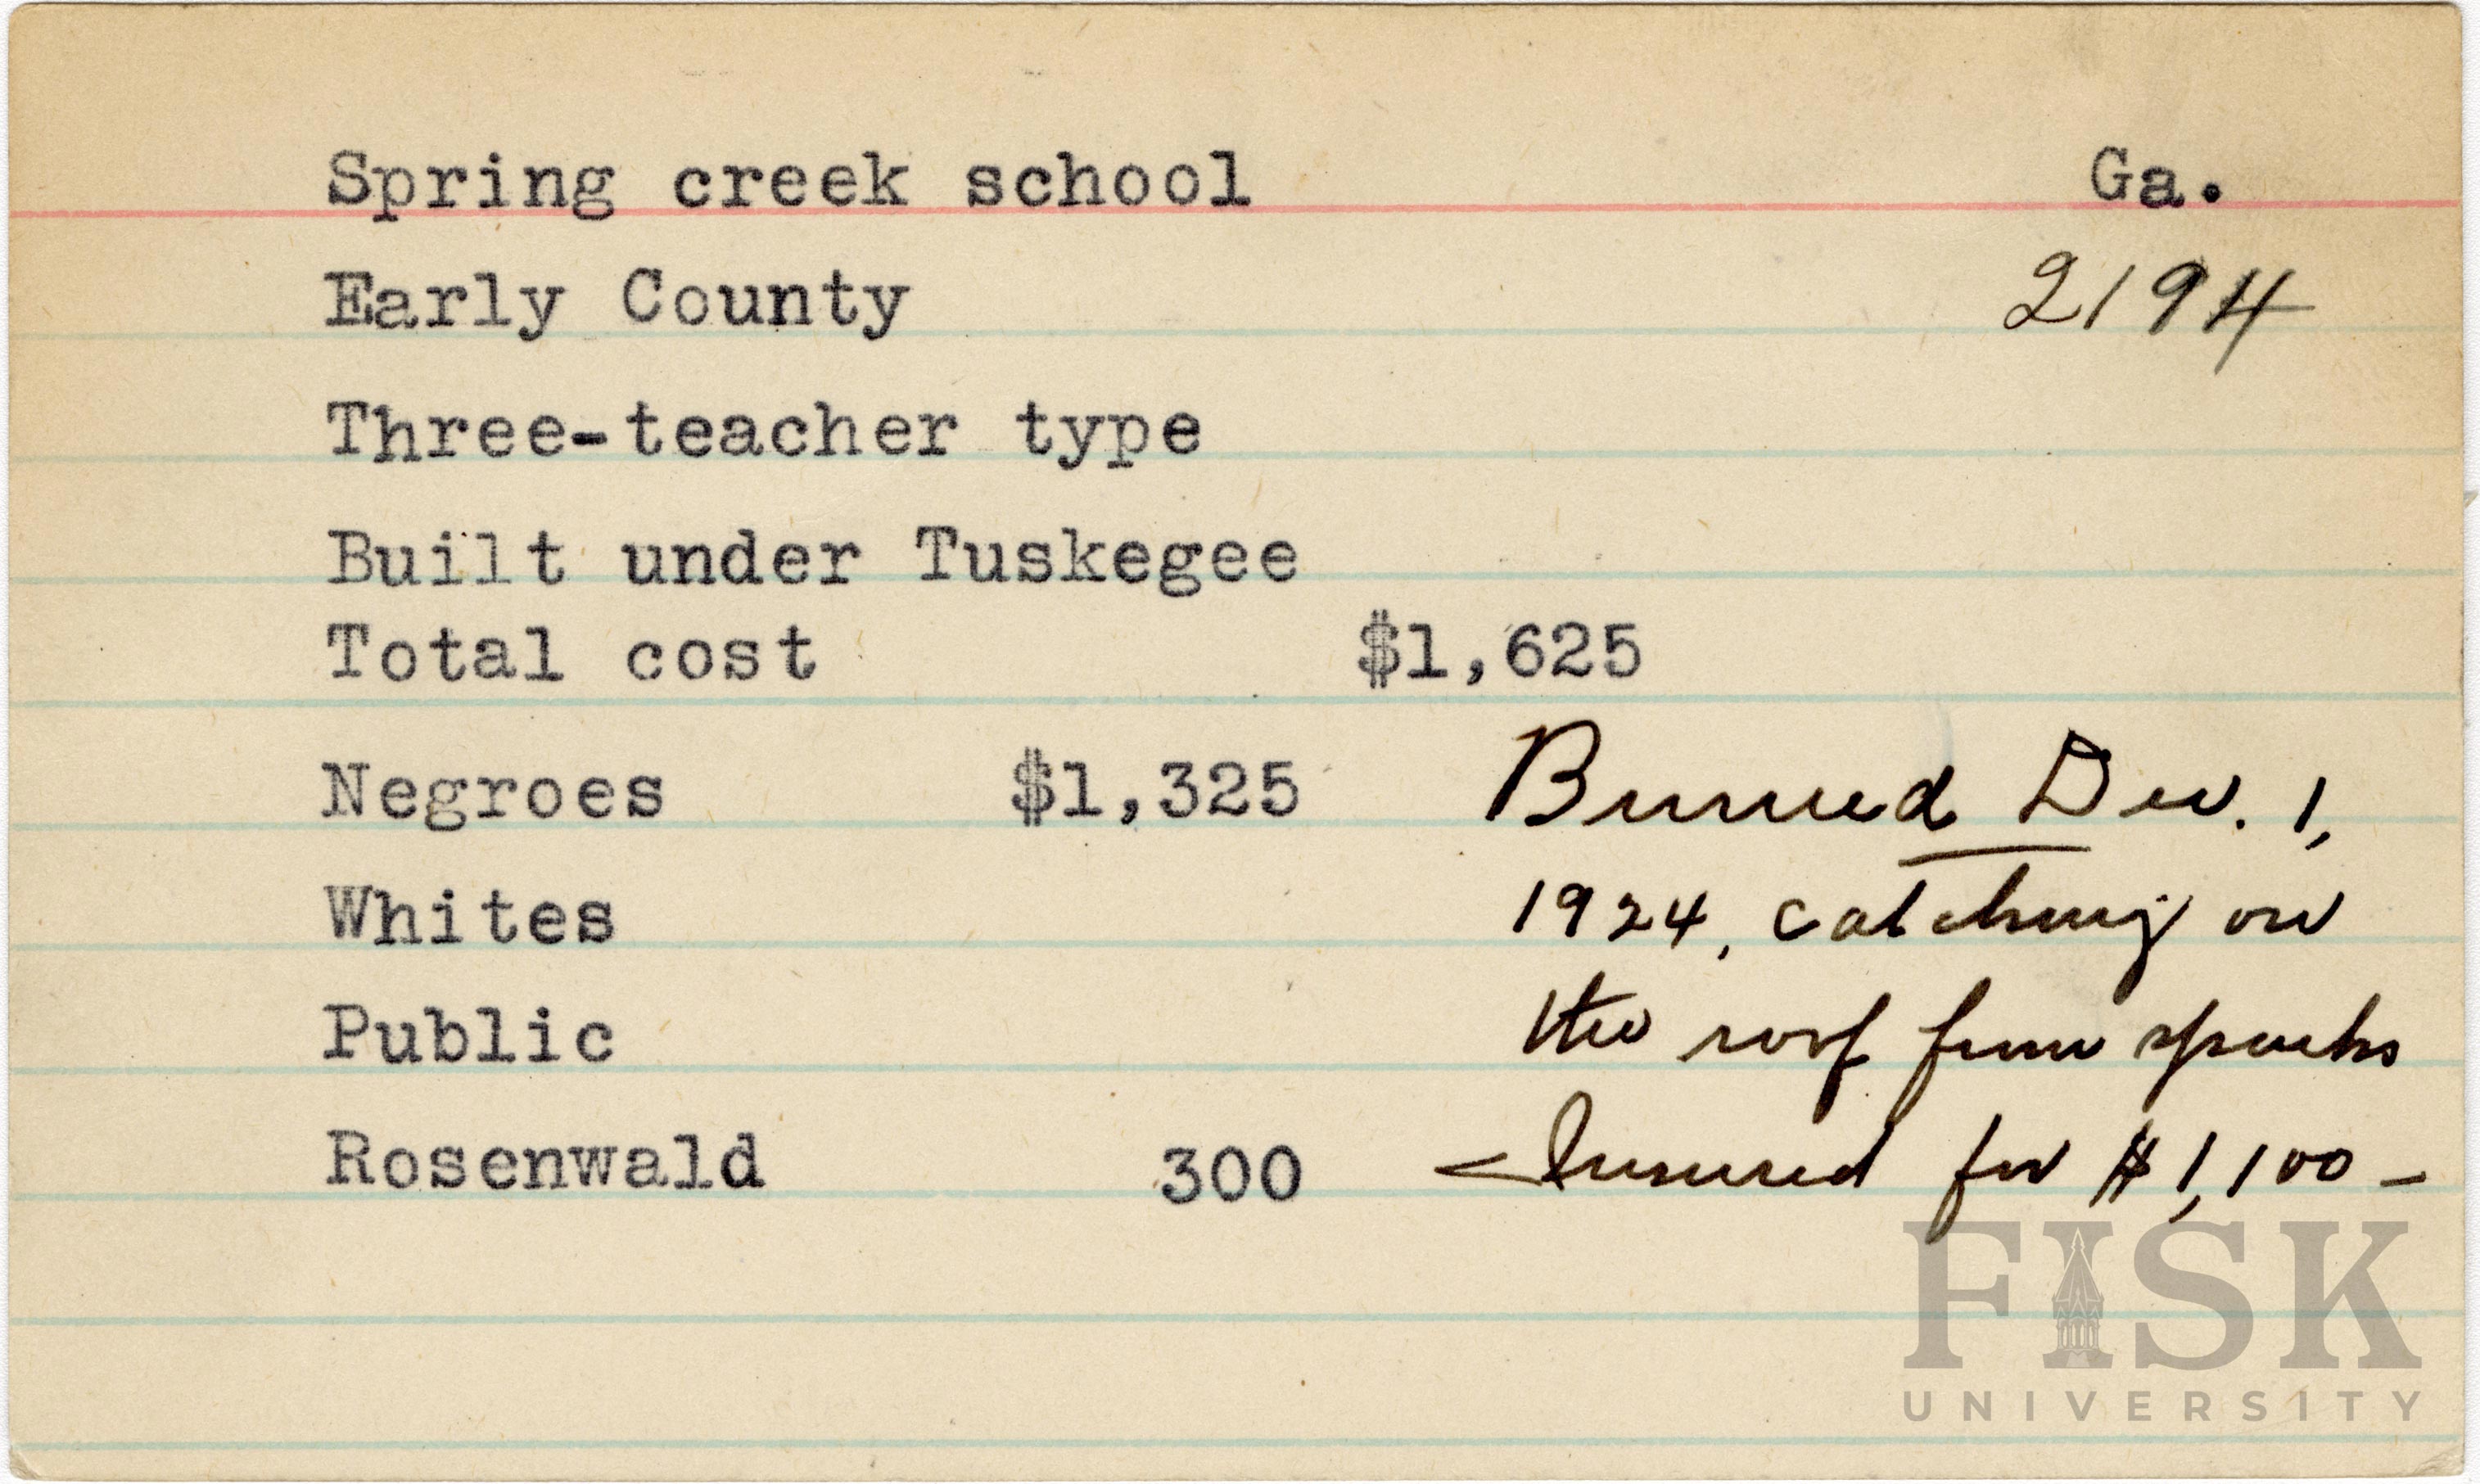 Spring creek school Ga.
Early County 2194
Three-teacher type
Built under Tuskegee
Total cost $1,625
Negroes $1,325
Whites
Public
Rosenwald 300
Burned Dec. 1,
1924, catching on
the roof from sparks
Insured for $1,100-
FISK
UNIVERSITY